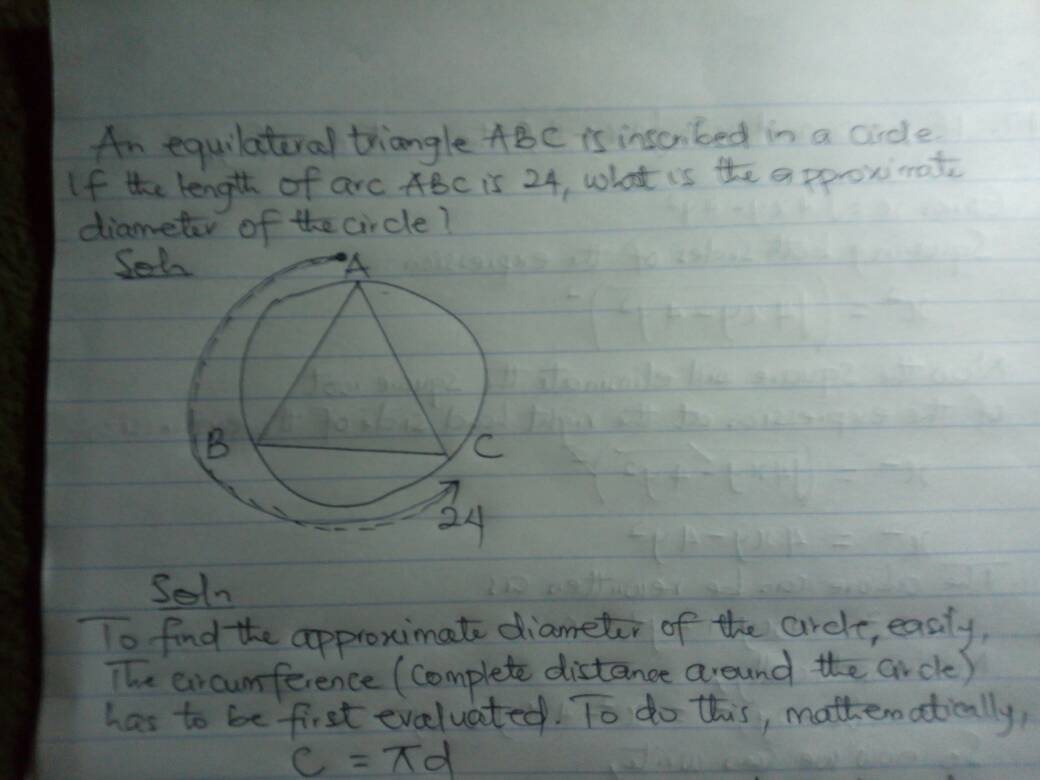 An equilateral triangle ABC is inscribed in a circle.
If the length of arc ABC is 24, what is the approximate
diameter of the circle?
Soln
A
B
C
24
Soln
To find the approximate diameter of the circle, easily,
The circumference (complete distance around the circle)
has to be first evaluated. To do this, mathematically,
C = πd